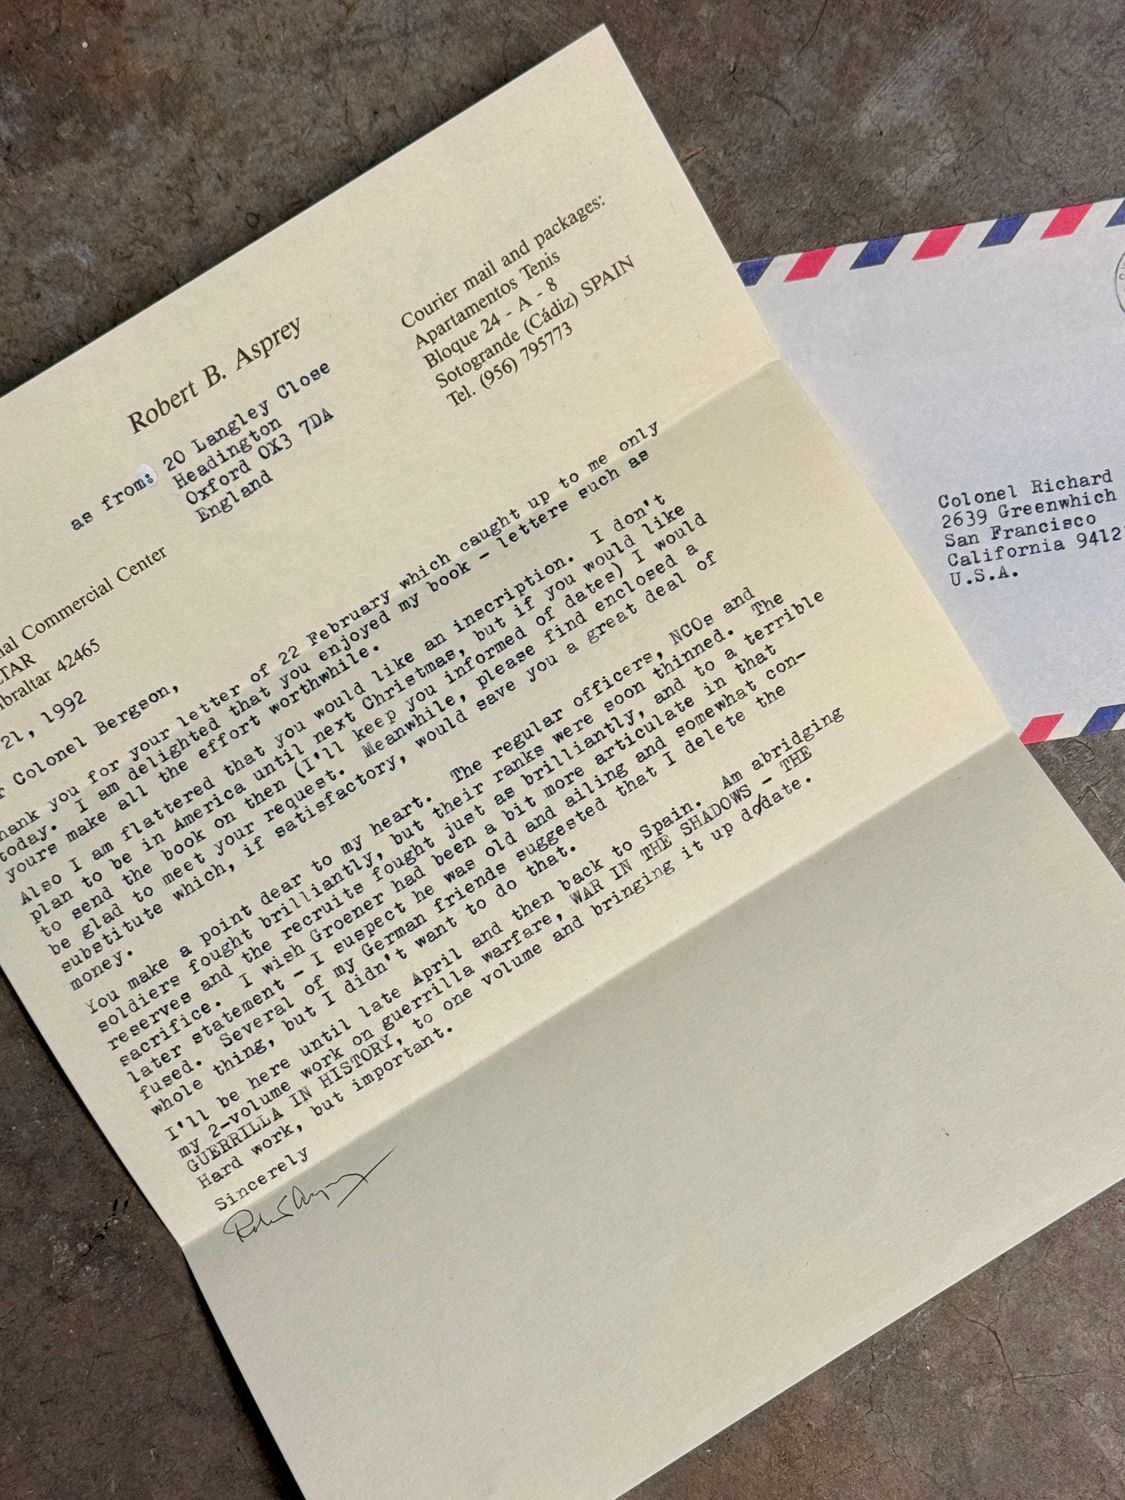 Robert B. Asprey
Courier mail and packages:
Apartamentos Tenis
Bloque 24 - A - 8
Sotogrande (Cádiz) SPAIN
Tel. (956) 795773
as from: 20 Langley Close
Headington
Oxford OX3 7DA
England
Commercial Center
42465
21, 1992
Colonel Bergson,
hank you for your letter of 22 February which caught up to me only
today. I am delighted that you enjoyed my book - letters such as
yours make all the effort worthwhile.
Also I am flattered that you would like an inscription. I don't
plan to be in America until next Christmas, but if you would like
to send the book on then (I'll keep you informed of dates) I would
be glad to meet your request. Meanwhile, please find enclosed a
substitute which, if satisfactory, would save you a great deal of
money.
You make a point dear to my heart. The regular officers, NCOs and
soldiers fought brilliantly, but their ranks were soon thinned. The
reserves and the recruits fought just as brilliantly, and to a terrible
sacrifice. I wish Groener had been a bit more articulate in that
later statement - I suspect he was old and ailing and somewhat con-
fused. Several of my German friends suggested that I delete the
whole thing, but I didn't want to do that.
I'll be here until late April and then back to Spain. Am abridging
my 2-volume work on guerrilla warfare, WAR IN THE SHADOWS - THE
GUERRILLA IN HISTORY, to one volume and bringing it up dodate.
Hard work, but important.
Sincerely
Robert Asprey
Colonel Richard
2639 Greenwhich
San Francisco
California 9412
U.S.A.